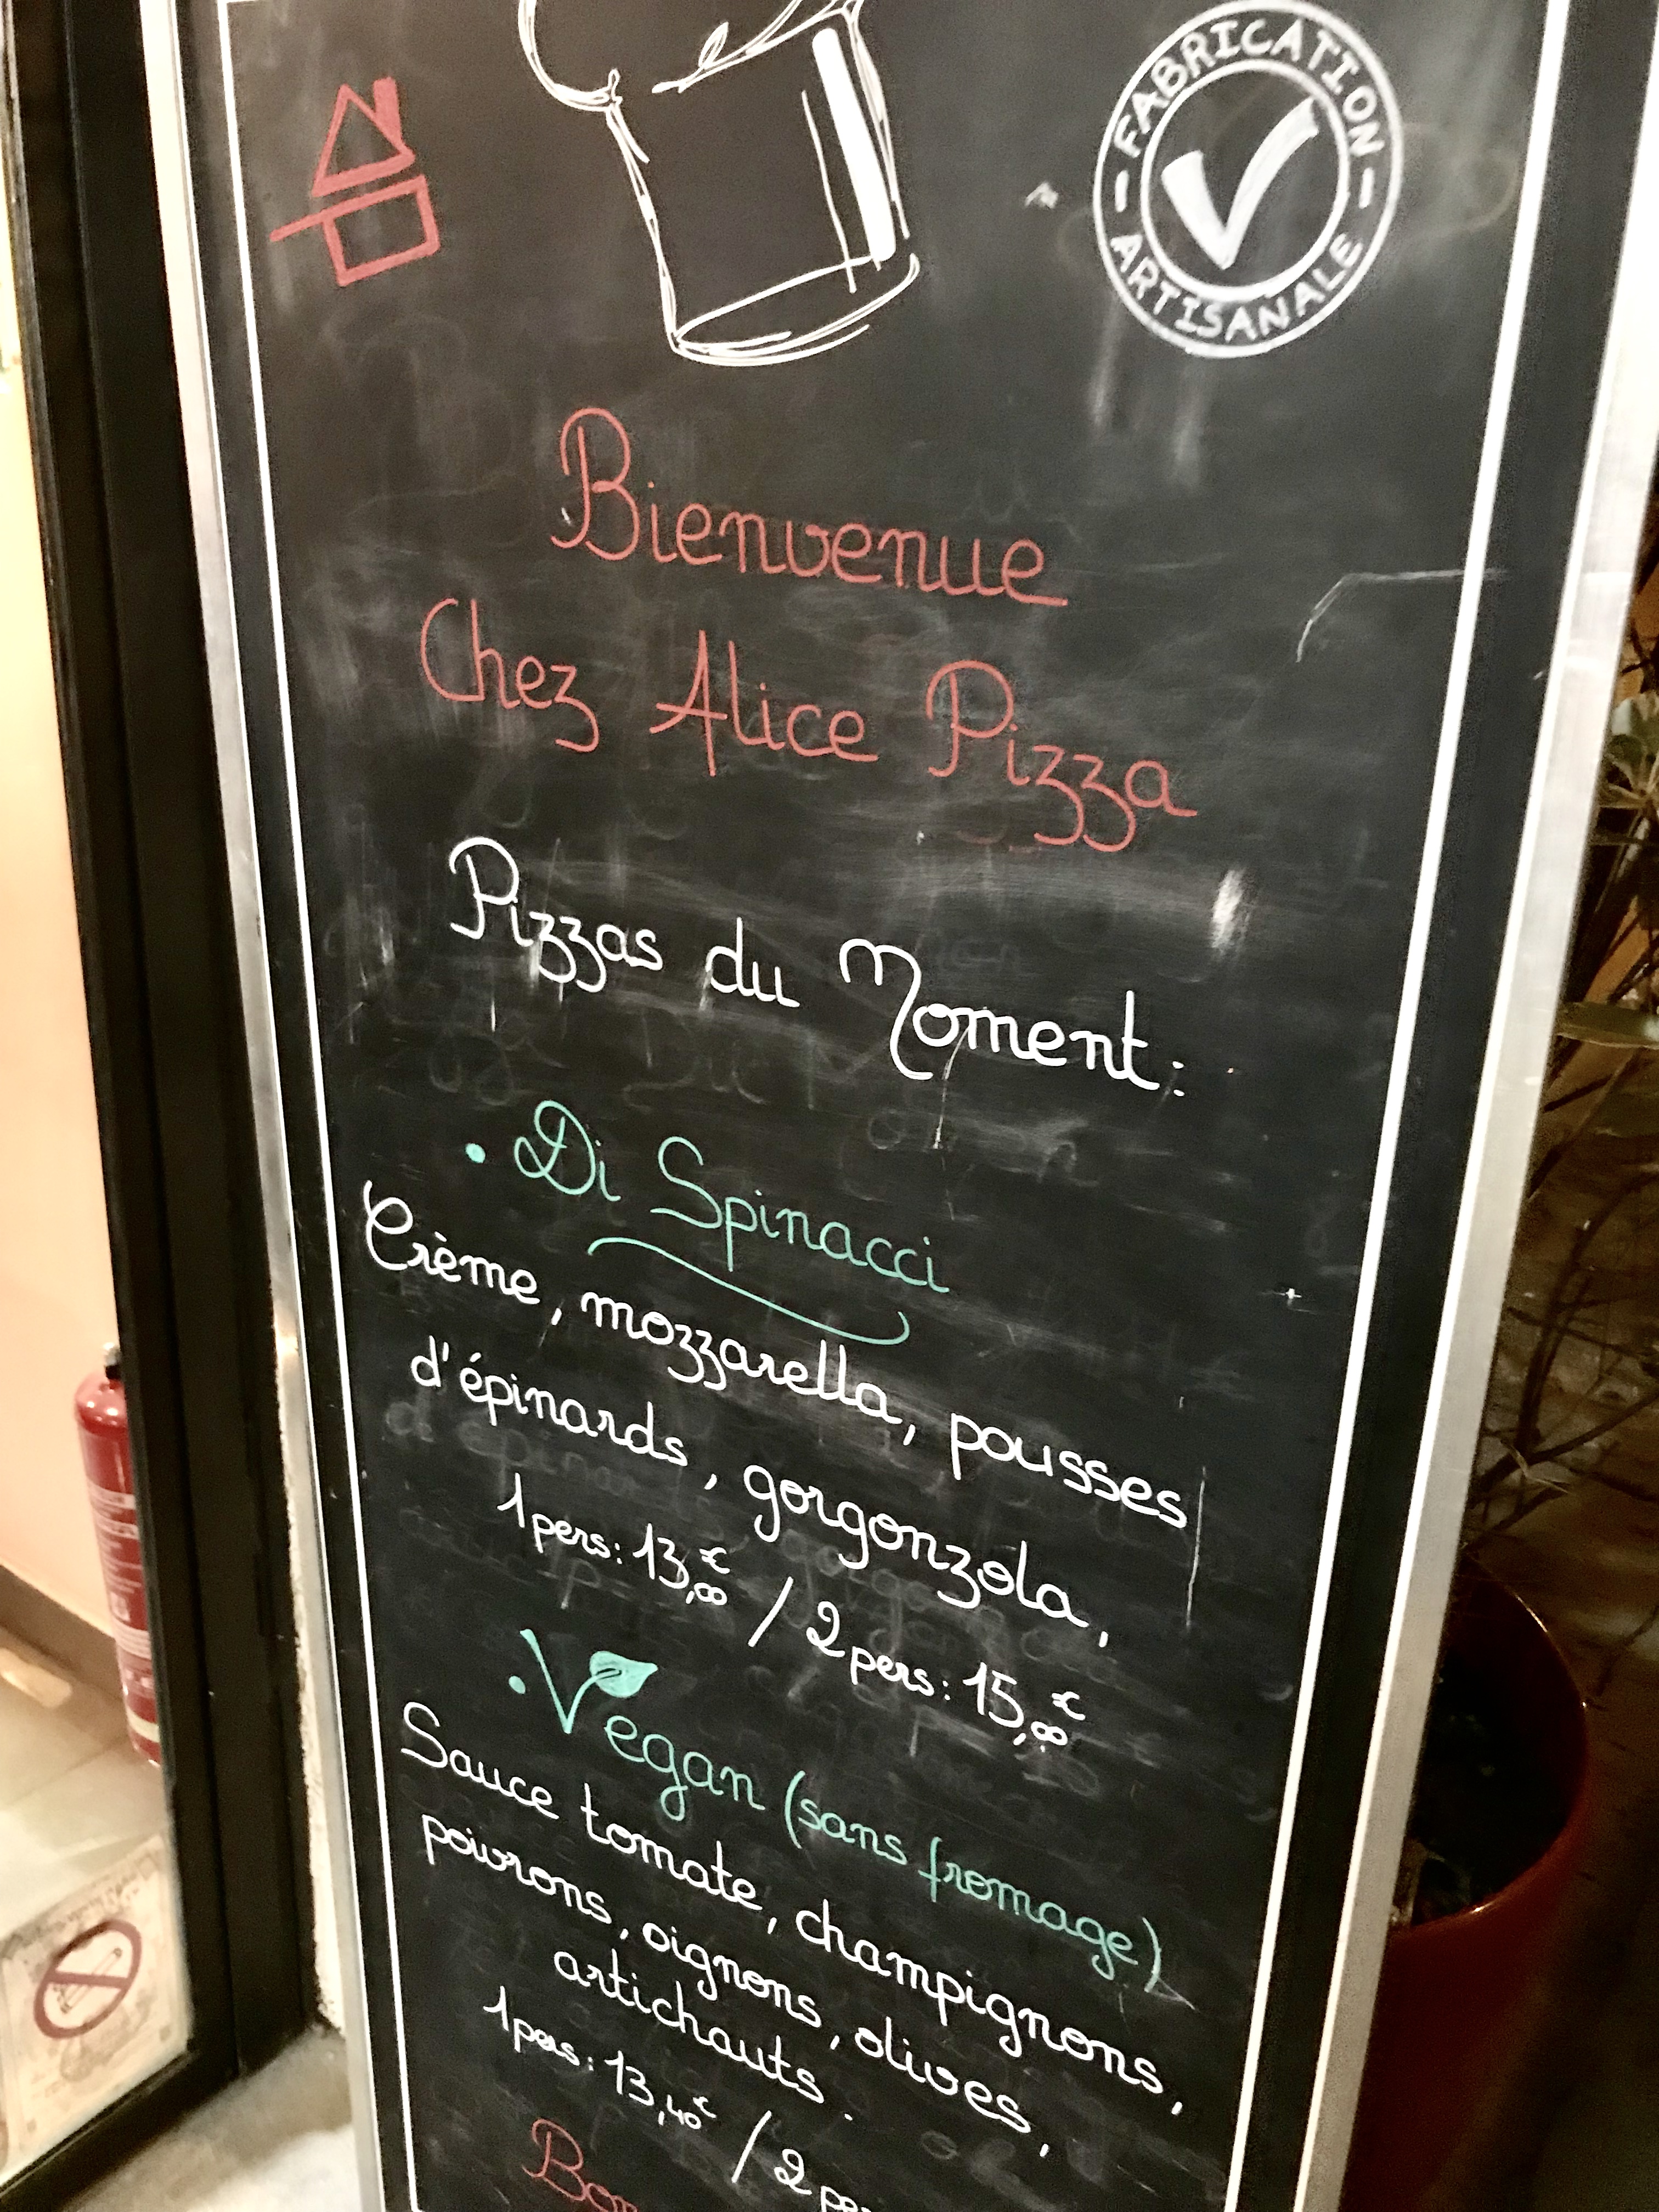 FABRICATION
ARTISANALE
Bienvenue
Chez Alice Pizza
Pizzas du Moment:
• Di Spinacci
Crème, mozzarella, pousses
d'épinards, gorgonzola,
1 pers: 13,00€ / 2 pers: 15,00€
• Vegan (sans fromage)
Sauce tomate, champignons,
poivrons, oignons, olives,
artichauts.
1 pers: 13,40€ / 2